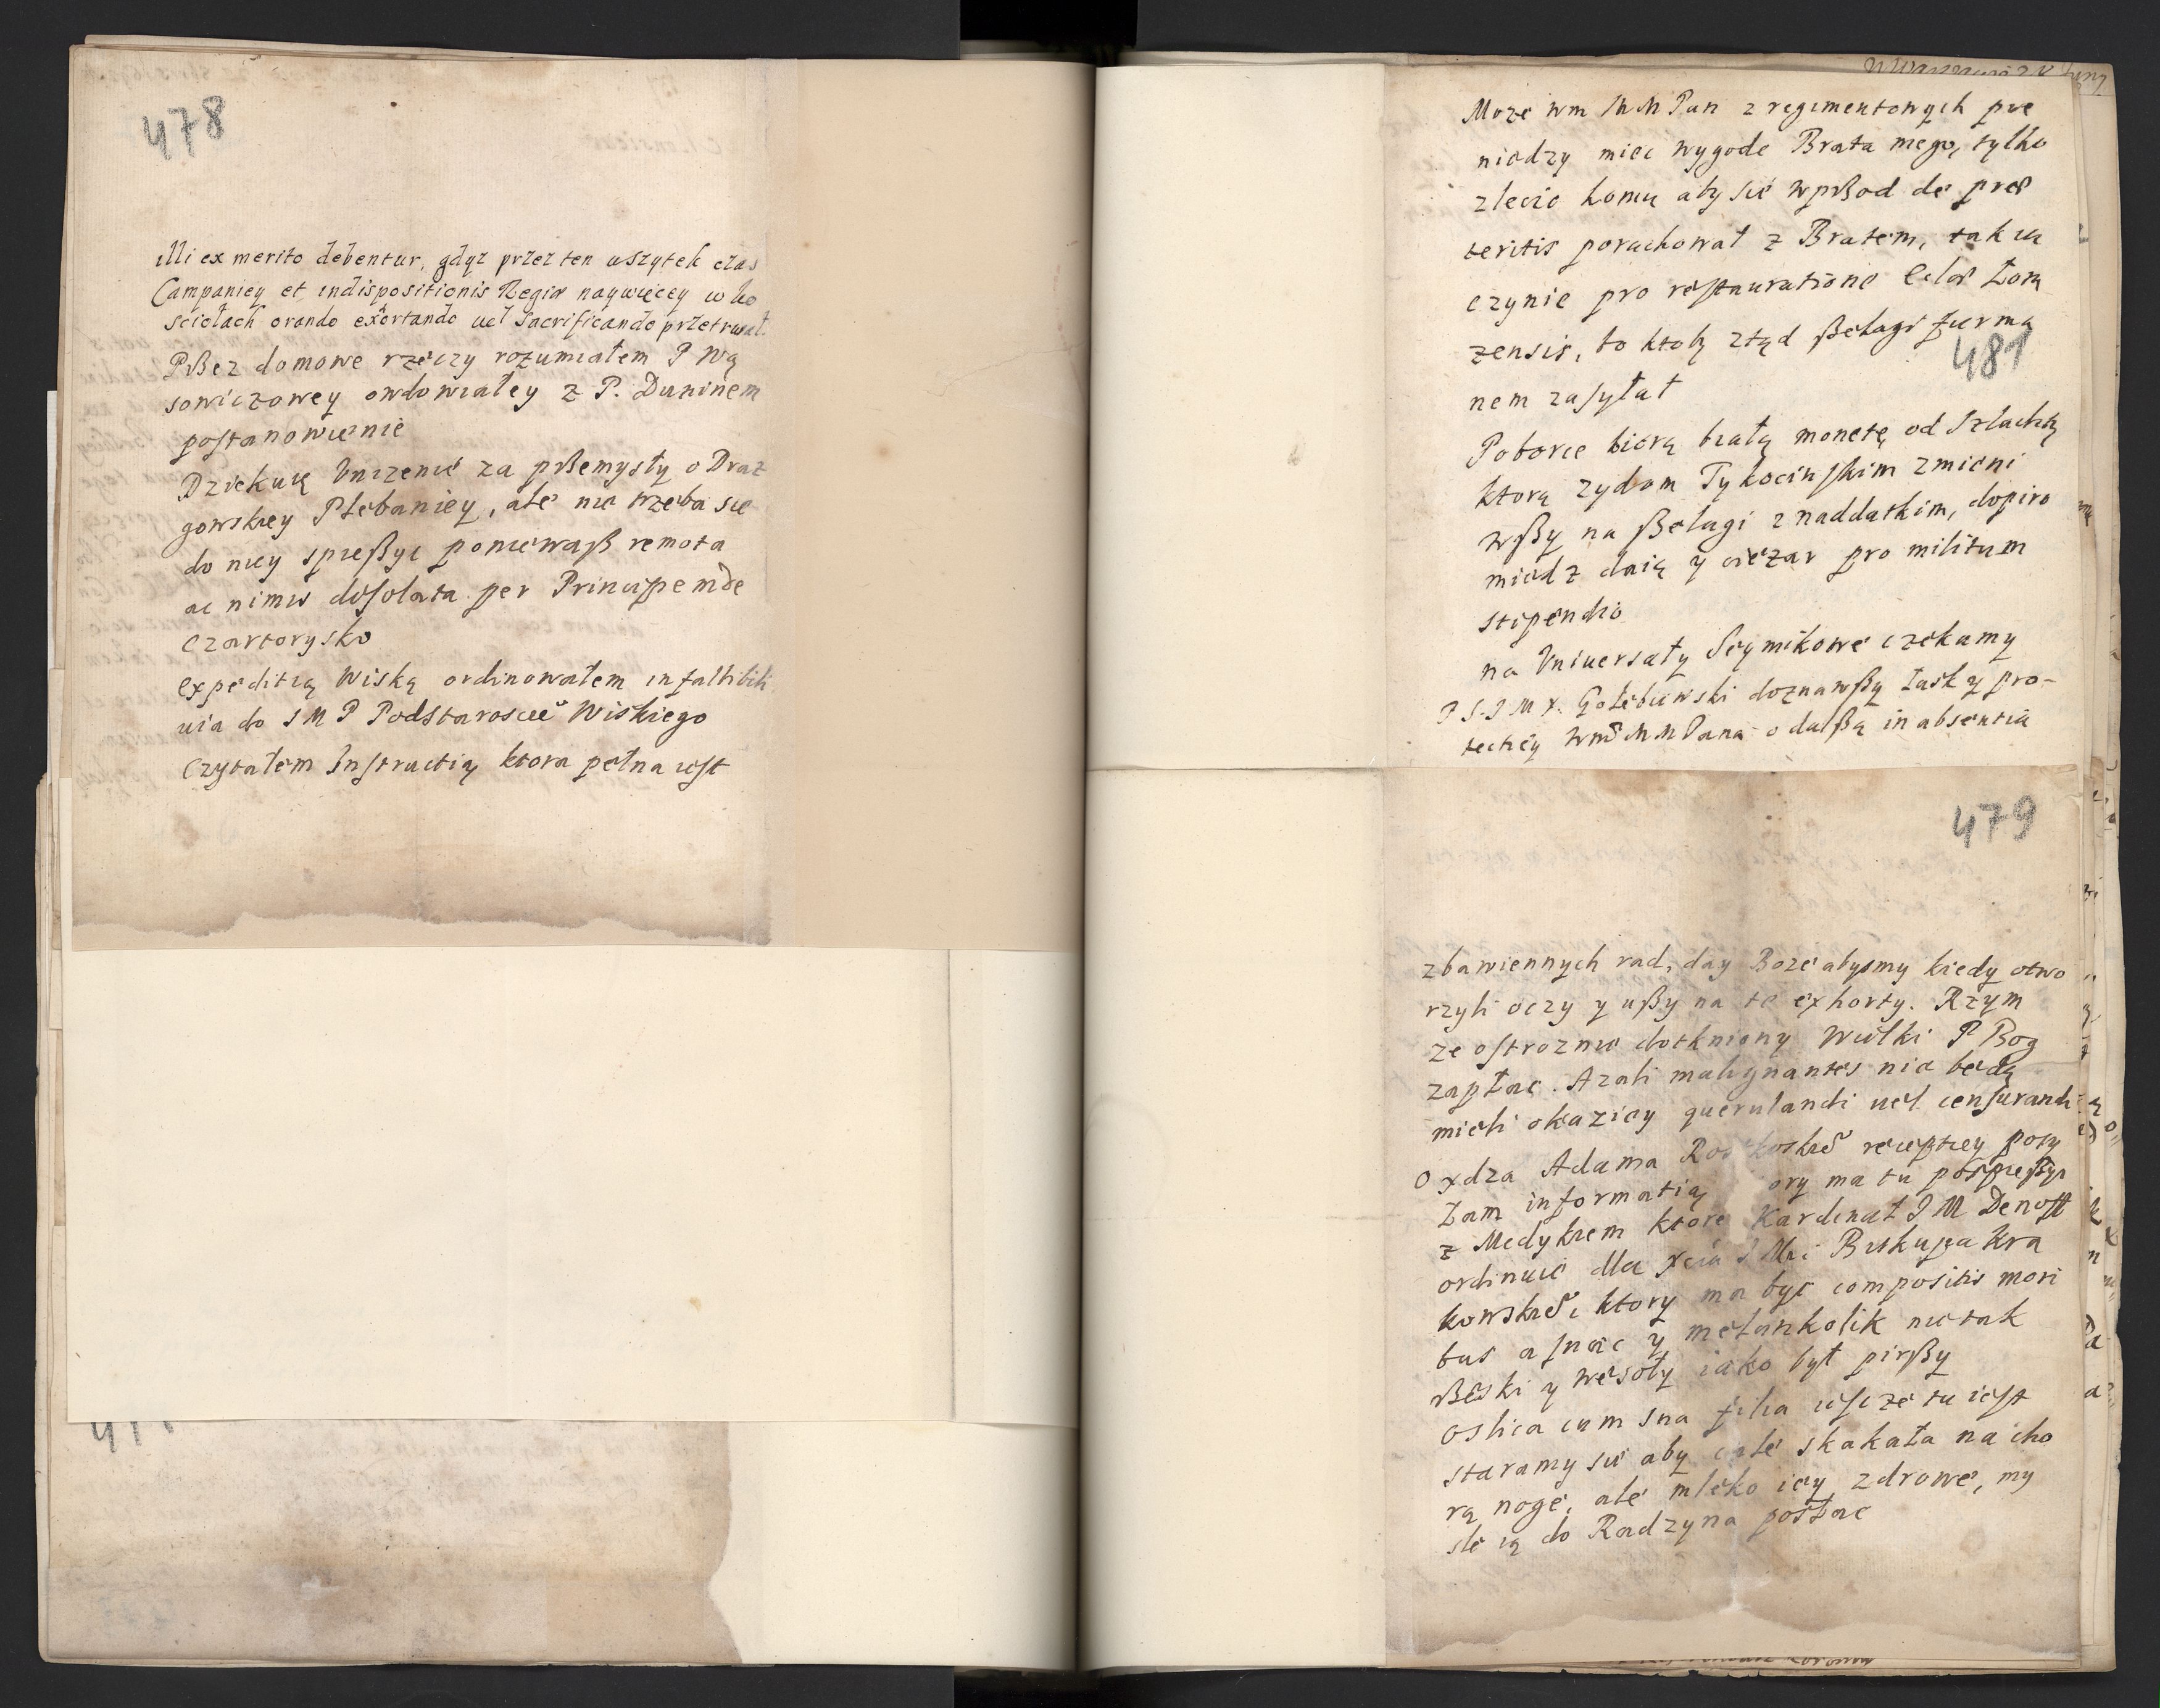 478
illi ex merito debentur, gdyz przez ten wszytek czas
Campaniey et indispositionis Regiæ naywięcey w ko
sciołach orando exortando uel sacrificando przetrwał.
Pßez domowe rzeczy rozumiałem P Wą
sowiczowey owdowiałey z P. Duninem
postanowienie
Dziekuię Unizenie za pßemysły o Draz
gowskiey Plebaniey, ale nie trzeba sie
do niey spießyc poniewaß remota
ac nimis desolata per Principem de
Czartorysko
Expeditią Wiską ordinowałem infallibili
uia do J M P Podstarosciē Wiskiego
Czytałem Instructią ktora pełna iest
Moze wm M M Pan z regimentowych pie
niedzy miec wygode Brata mego, tylko
zlecic komu aby sie wpßod de præ
teritis porachował z Bratem, tak ia
czynie pro restauratione Eclæ Łom
zensis, bo ktoby ztąd ßelagi furma
481
nem zasyłał
Poborce biorą białą monetę od Szlachty
ktorą zydom Tykocinskim zmieni
wßy na ßelagi z naddatkim, dopiro
miedz daią y ciezar pro militum
stipendio
na Uniuersały Seymikowe czekamy
P S. J M X. Gołebiewski doznawßy łaski y pro-
tectiey M M Pana o dalßą in absentia
479
zbawiennych rad, day Boze abysmy kiedy otwo
rzyli oczy y ußy na te exhorty. Rzym
ze ostroznie dotkniony Wielki P Bog
zapłac. Azali malignantes nie bedą
mieli okaziey querulandi uel censurandi
O xdza Adama recuptiey posy
łam informatią ory ma tu pospießyc
z Medykiem ktore Kardinał J M Denoff
ordinuie dla Xcia J Mci Biskupa Kra
kowskie ktory ma byc compositis mori
bus a snac y melankolik nie tak
ßeski y wesoły iako był pirßy
Oslica cum sua filia iescze tu iest
staramy sie aby cale skakała na cho
rą noge, ale mleko iey zdrowe, my
sle ią do Radzyna posłac